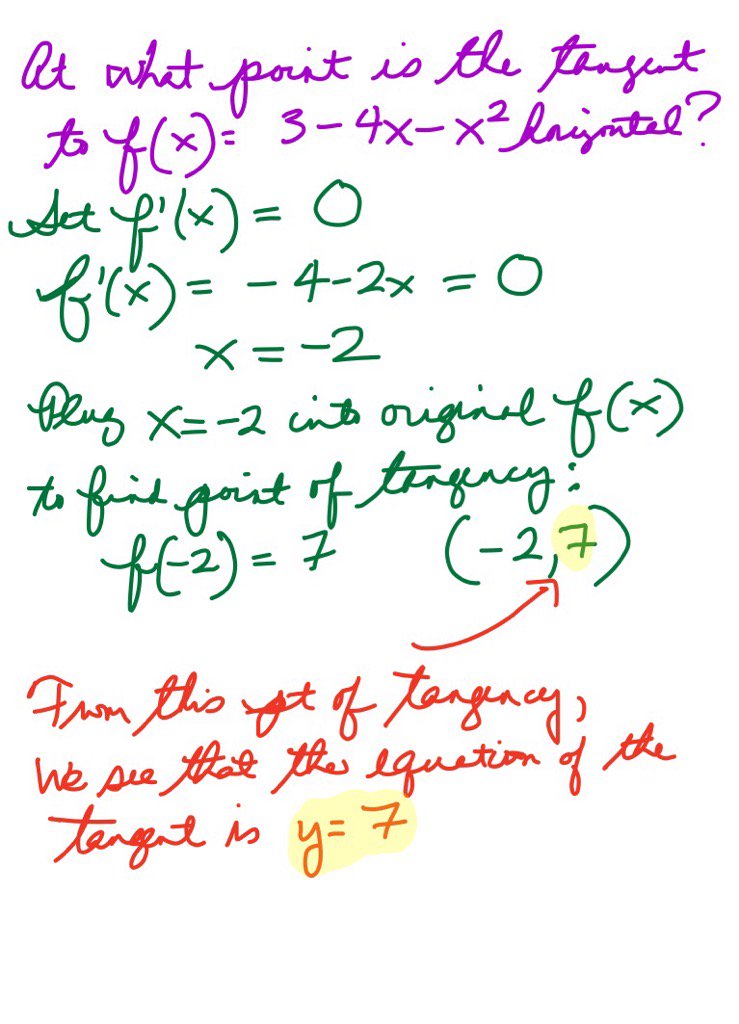 At what point is the tangent
to f(x) = 3 - 4x - x² horizontal?
Set f'(x) = 0
f'(x) = - 4 - 2x = 0
x = -2
Plug x = -2 into original f(x)
to find point of tangency:
f(-2) = 7 (-2, 7)
From this pt of tangency,
we see that the equation of the
tangent is y = 7